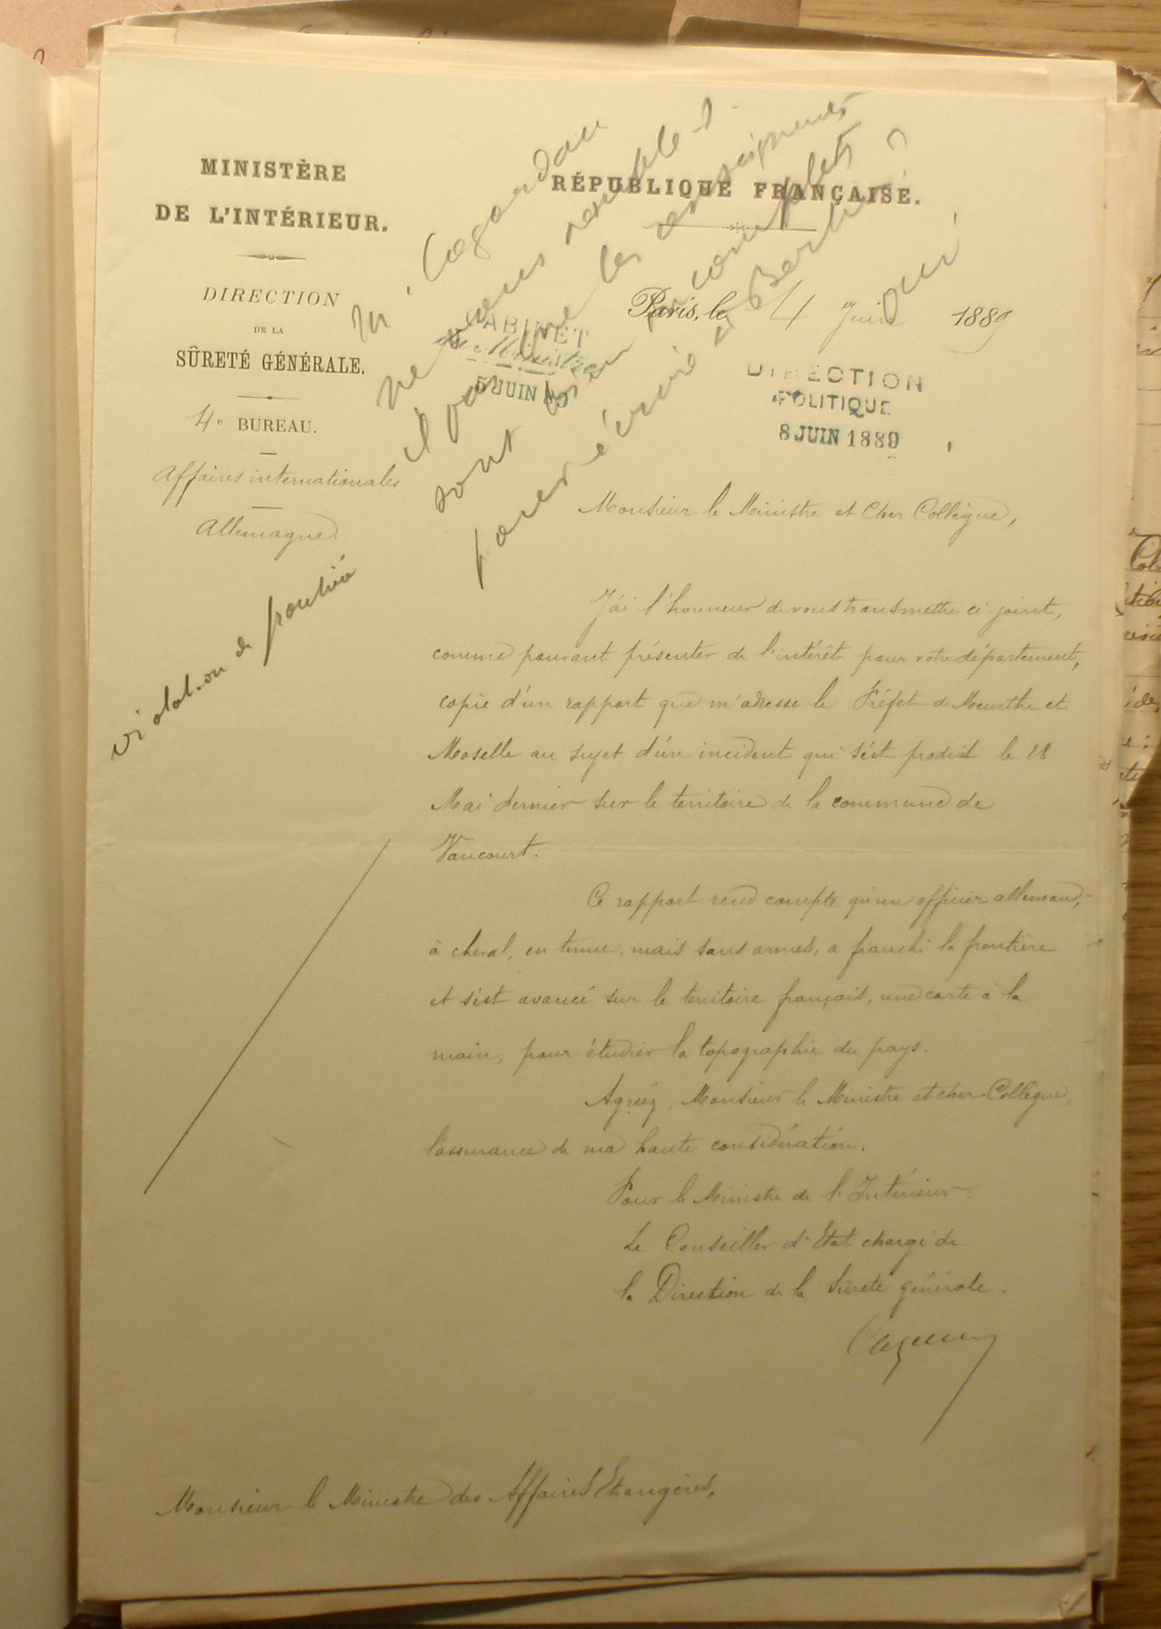 MINISTÈRE
DE L'INTÉRIEUR.
DIRECTION
DE LA
SÛRETÉ GÉNÉRALE.
4e BUREAU.
Affaires internationales
Allemagne
violation de frontière
RÉPUBLIQUE FRANÇAISE.
Paris, le 4 Juin 1889
CABINET
du Ministre
5 JUIN 89
DIRECTION
POLITIQUE
8 JUIN 1889
M. Cogordan
ne vous semble-t-
il pas que les renseignements
sont bien incomplets
pour écrire à Berlin ?
oui
Monsieur le Ministre et Cher Collègue,
J'ai l'honneur de vous transmettre ci-joint,
comme pouvant présenter de l'intérêt pour votre département,
copie d'un rapport que m'adresse le Préfet de Meurthe et
Moselle au sujet d'un incident qui s'est produit le 28
Mai dernier sur le territoire de la commune de
Vaucourt.
Ce rapport rend compte qu'un officier allemand,
à cheval, en tenue, mais sans armes, a franchi la frontière
et s'est avancé sur le territoire français, une carte à la
main, pour étudier la topographie du pays.
Agréez, Monsieur le Ministre et cher Collègue,
l'assurance de ma haute considération.
Pour le Ministre de l'Intérieur
Le Conseiller d'Etat chargé de
la Direction de la Sûreté générale.
Monsieur le Ministre des Affaires Etrangères,